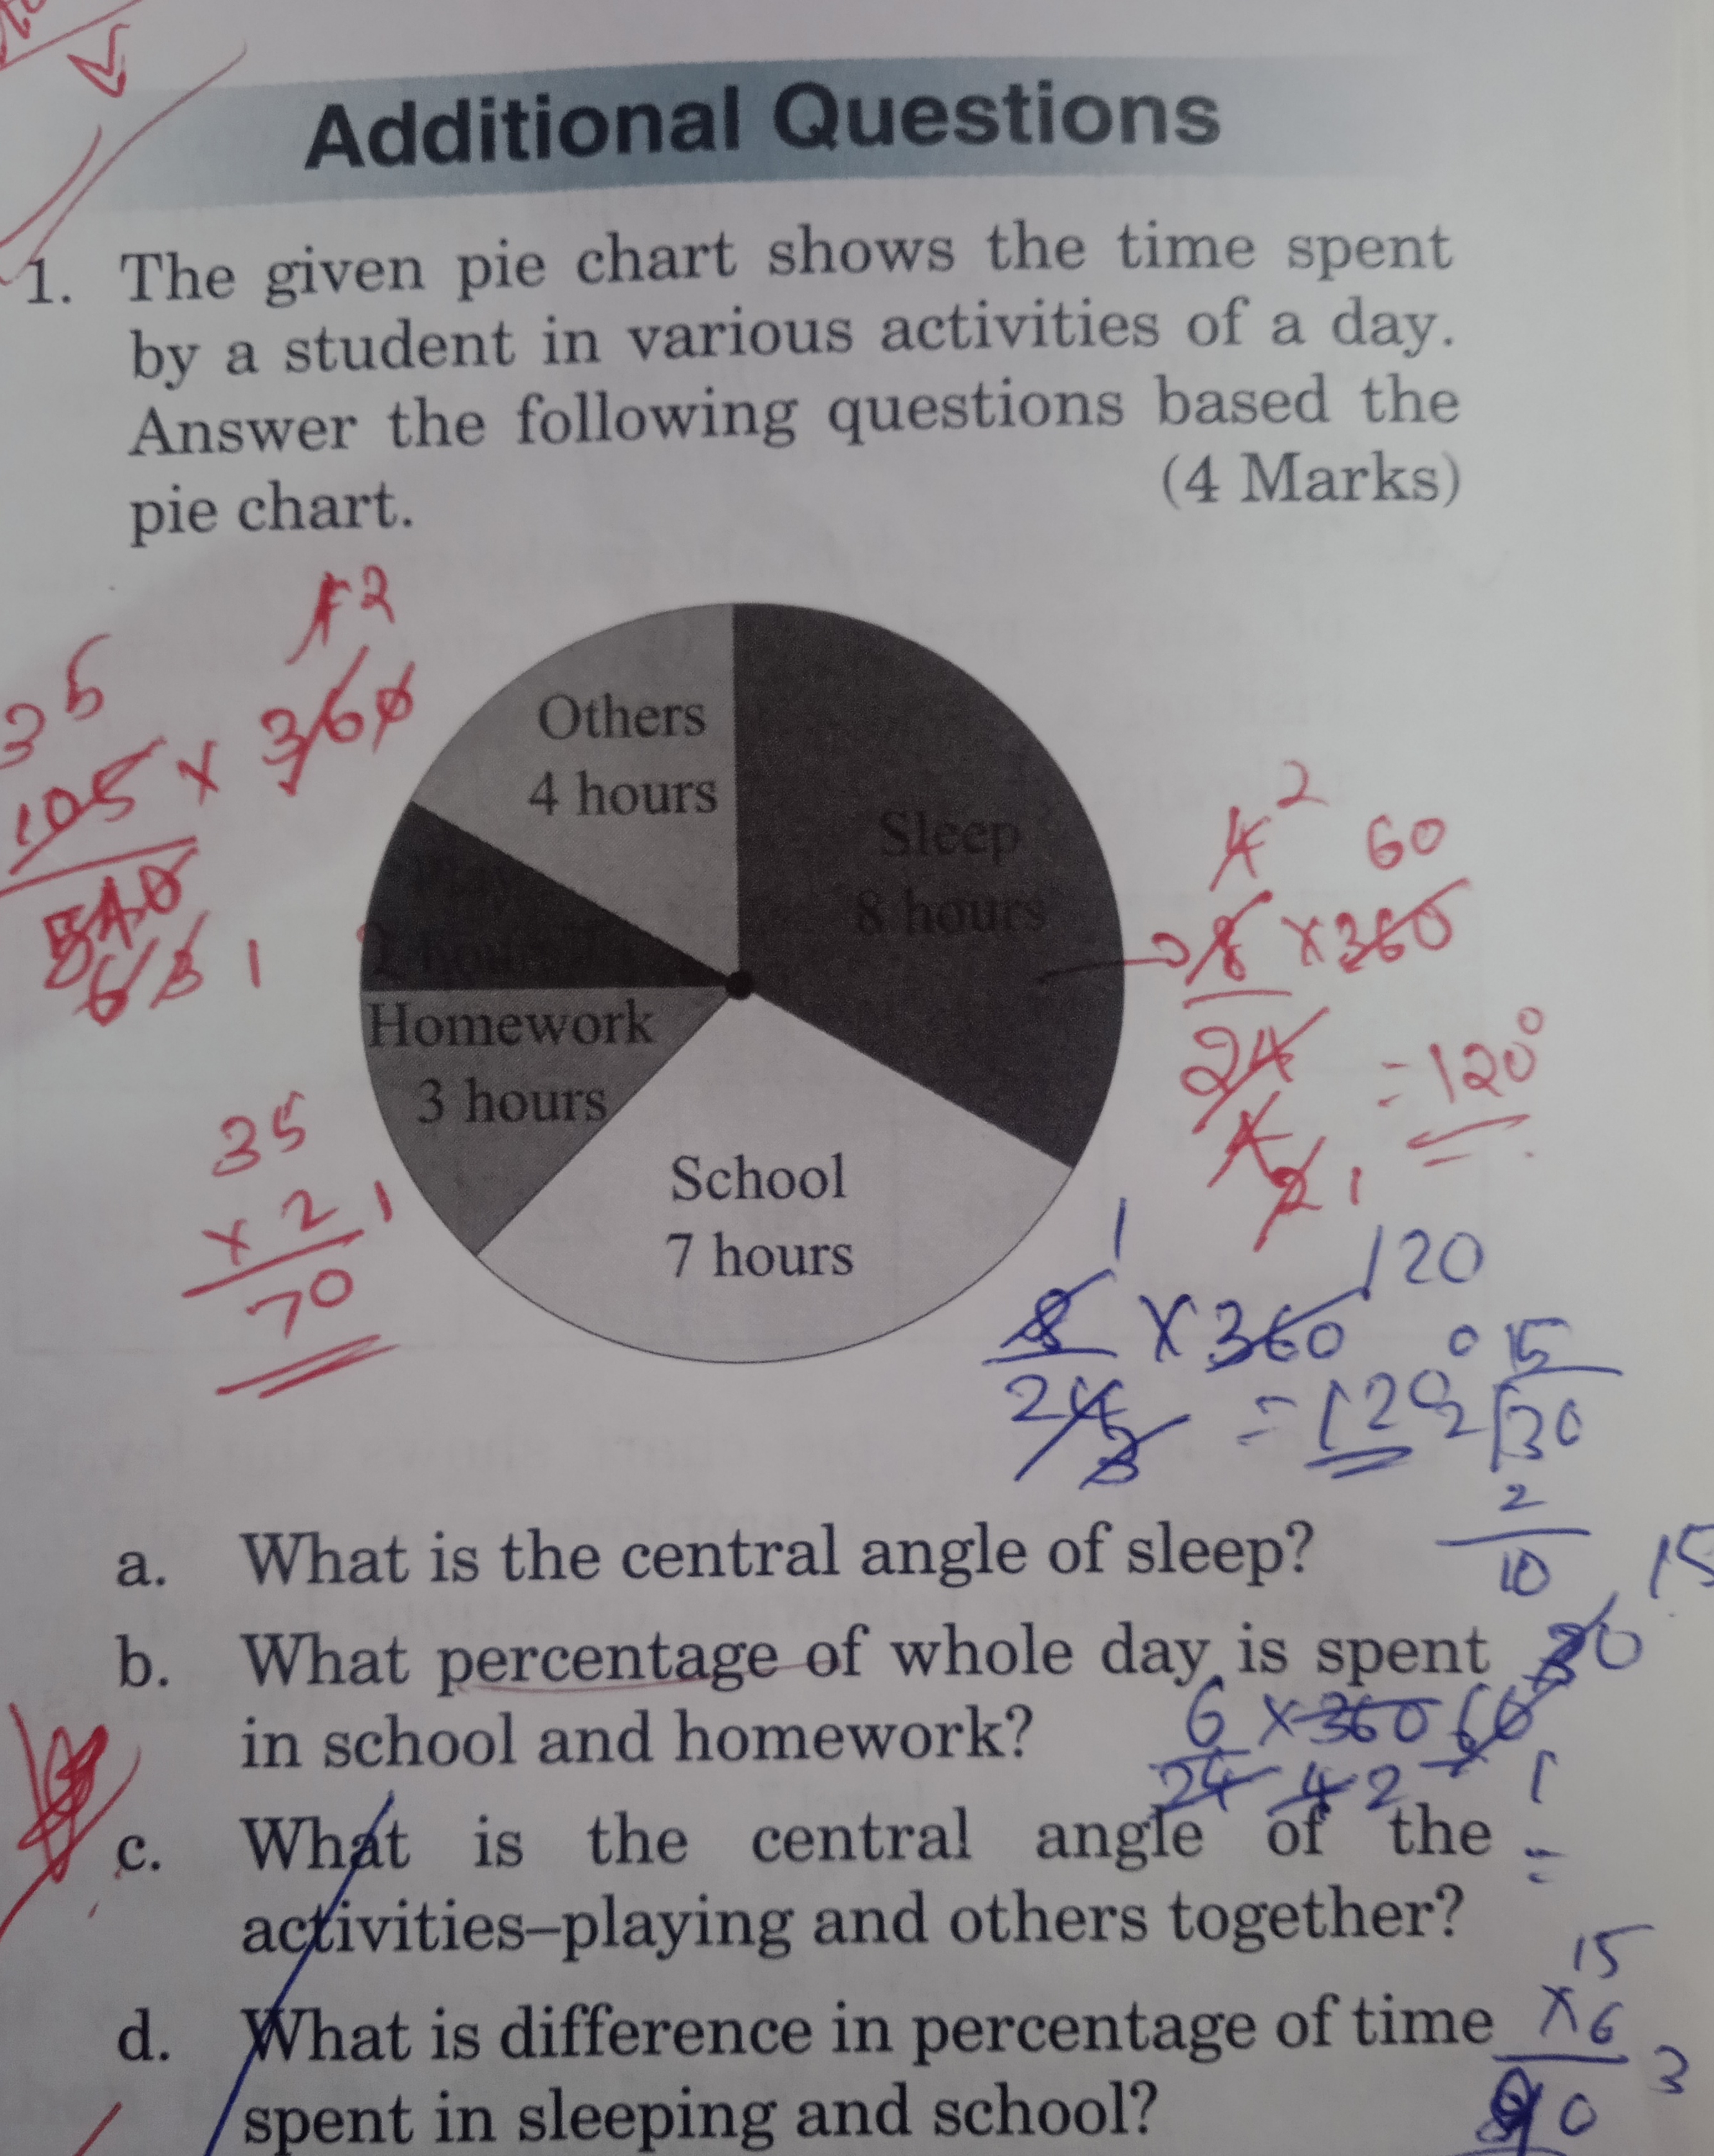 Additional Questions
1. The given pie chart shows the time spent
by a student in various activities of a day.
Answer the following questions based the
pie chart. (4 Marks)
Others
4 hours
Sleep
8 hours
2 hours
Homework
3 hours
School
7 hours
12
35
105 × 360
540
63 1
35
× 2
70
1
4 2 60
8 × 360
24 = 120°
4
2 1
1 120
8 × 360
24 = 120°
3
15
2 30
2
10
15
30
6 × 360 60
24 4 2 1
=
15
× 6
90
3
a. What is the central angle of sleep?
b. What percentage of whole day is spent
in school and homework?
c. What is the central angle of the
activities–playing and others together?
d. What is difference in percentage of time
spent in sleeping and school?